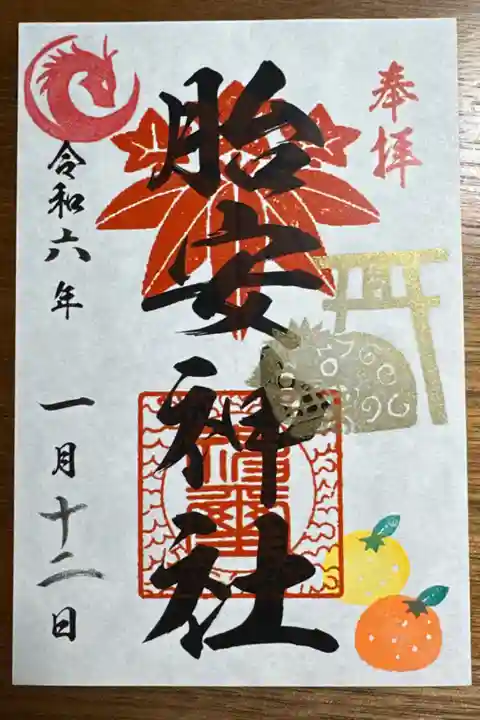 奉拝
胎安神社
令和六年
一月十二日